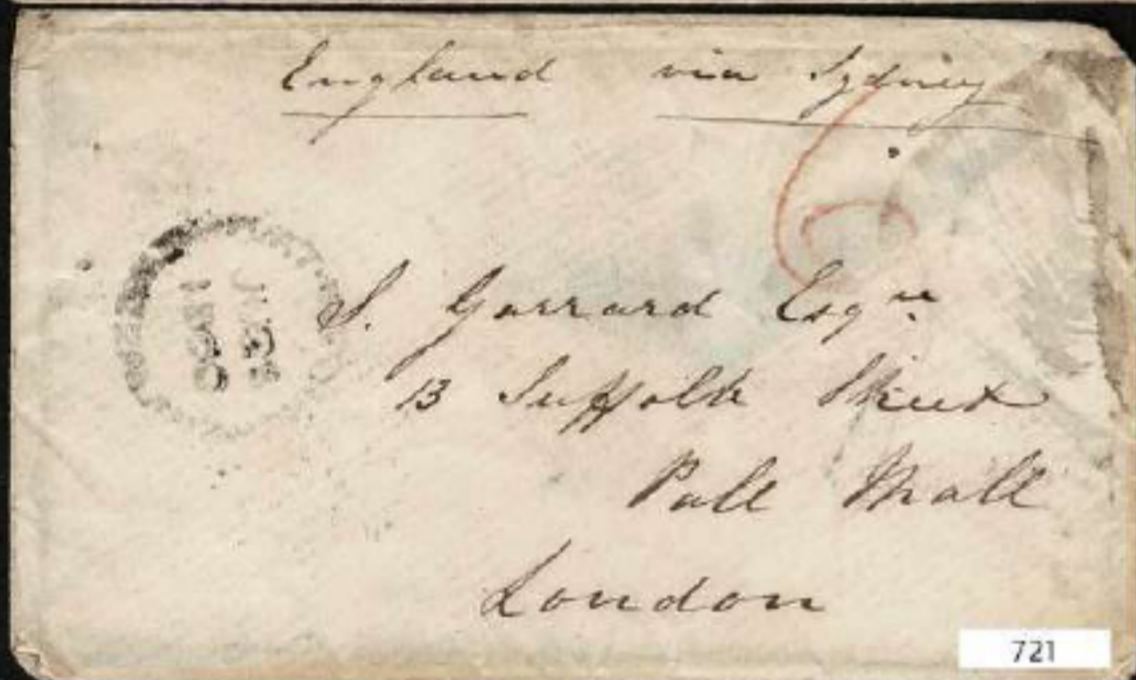 England via Sydney
6
S. Garrard Esqre
13 Suffolk Street
Pall Mall
London
721